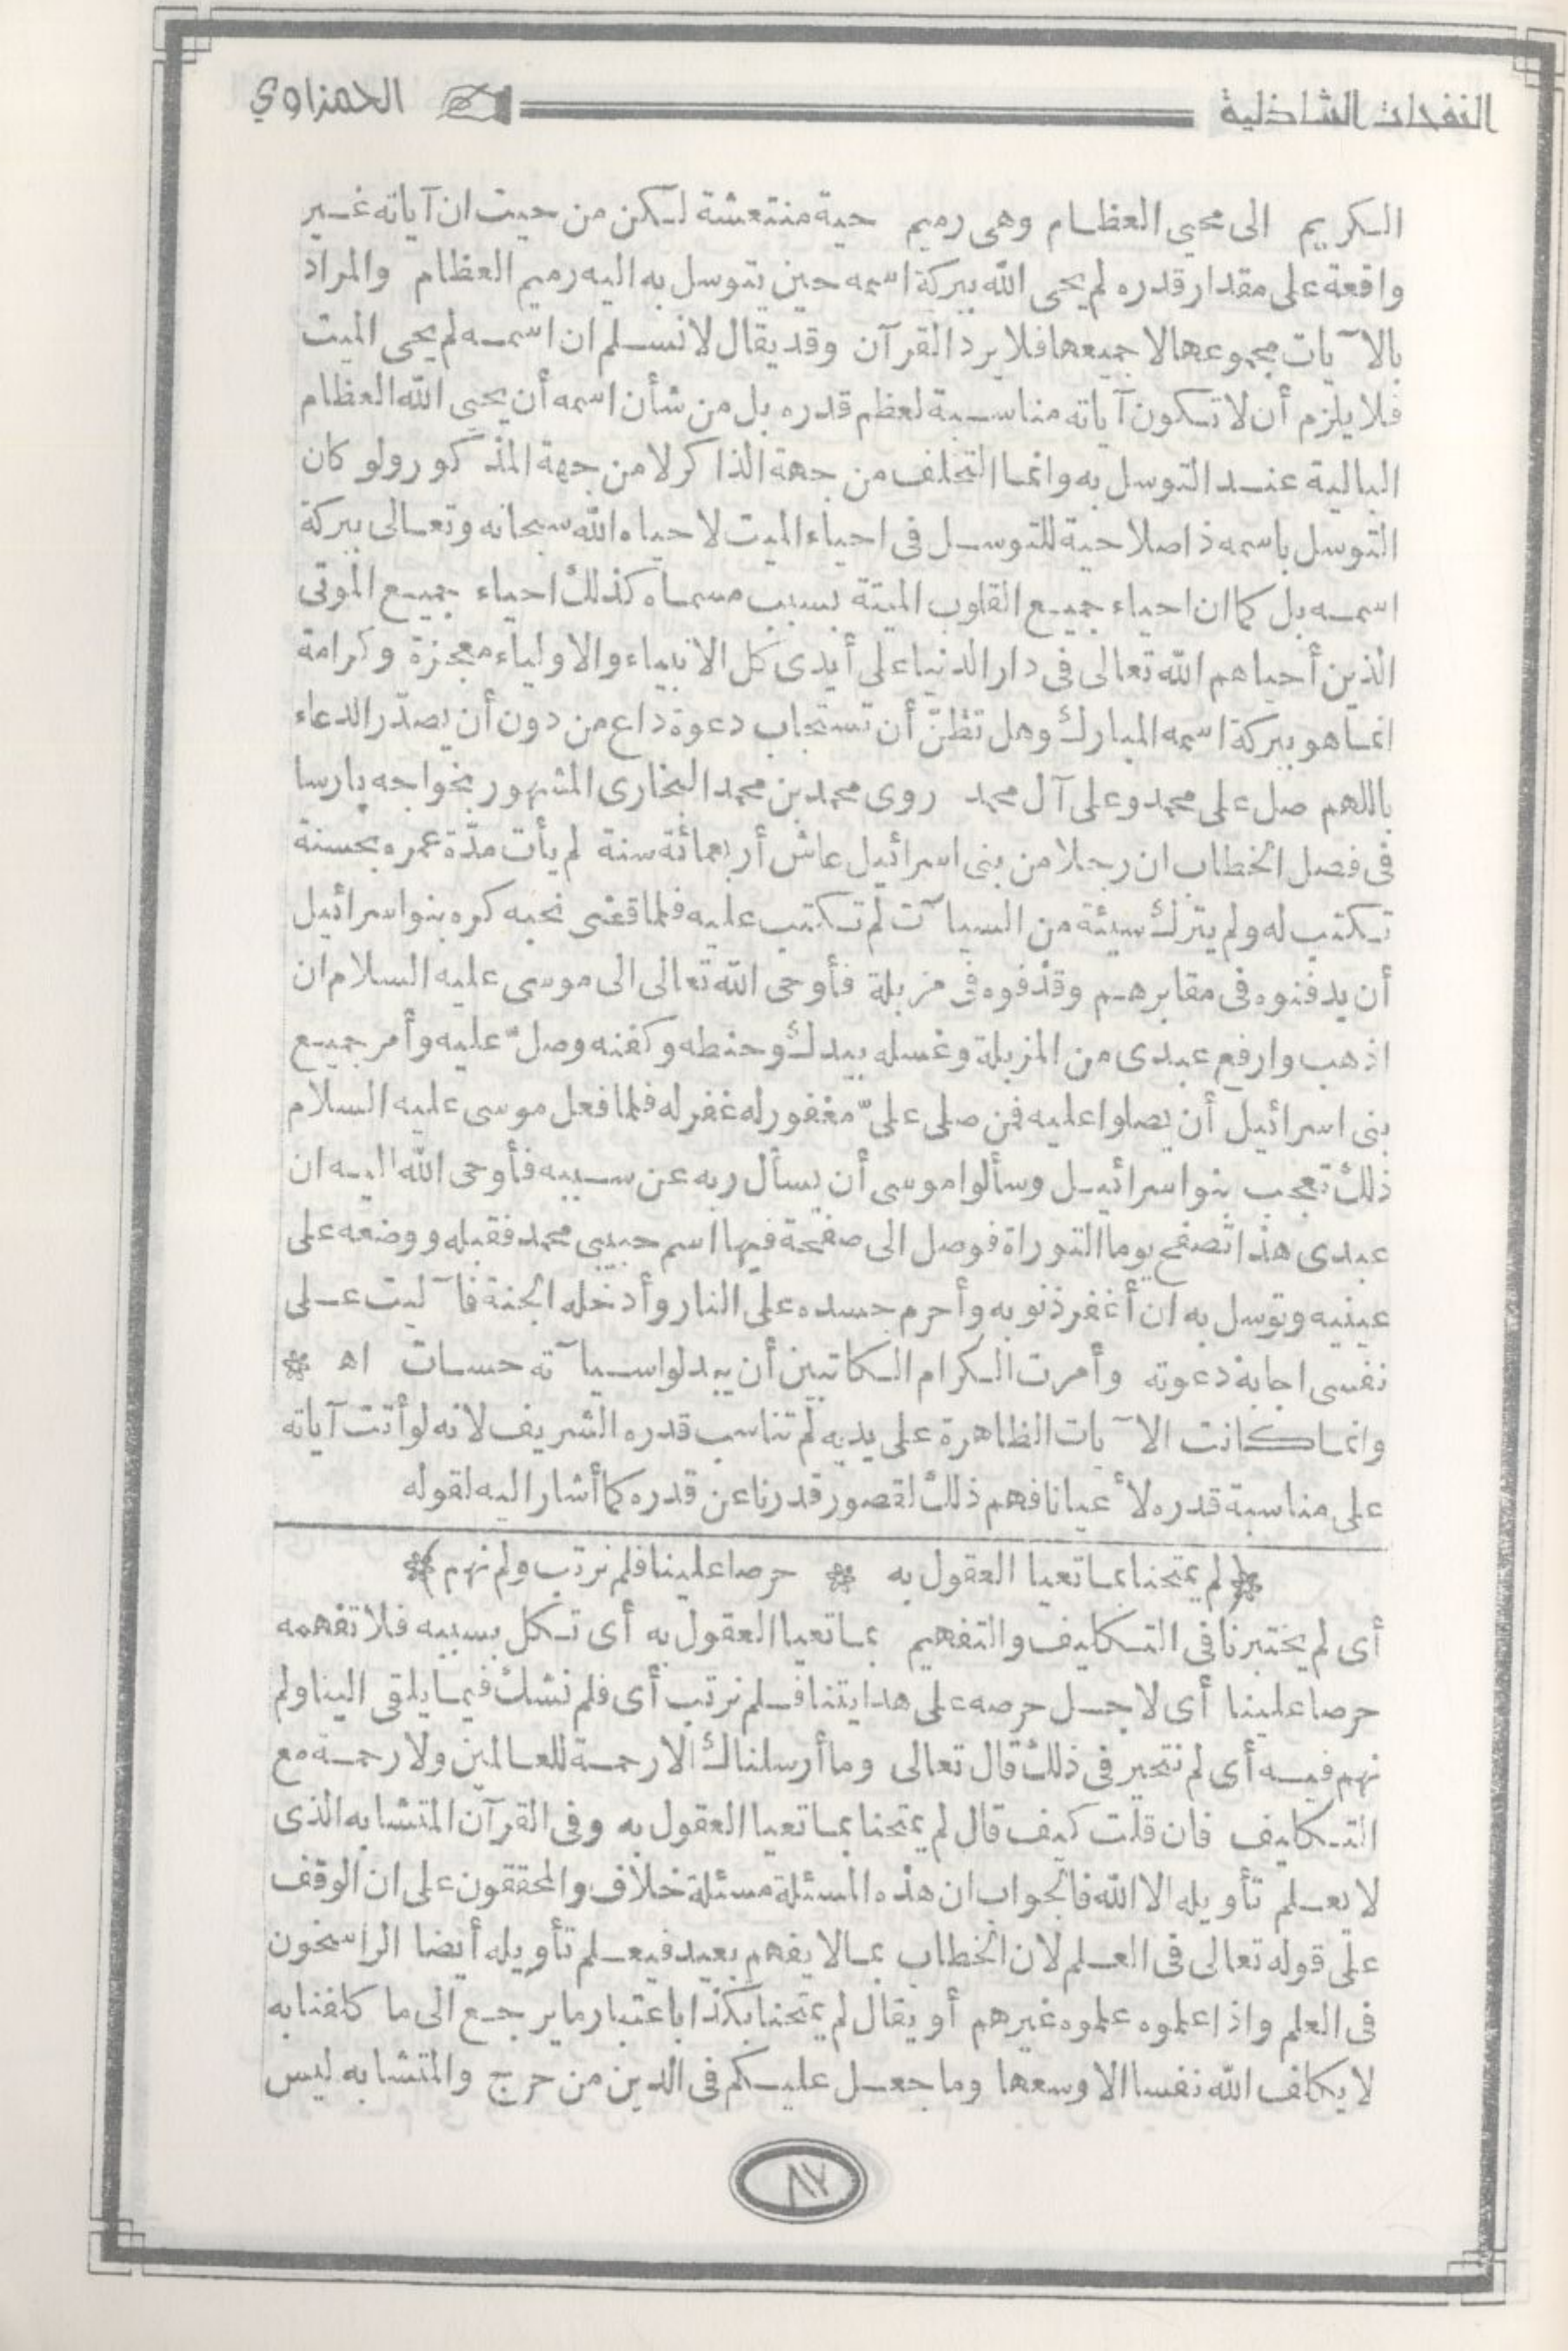 النفحات الشاذلية الحمزاوي
الكريم الى محيي العظام وهى رميم حية منتعشة لكن من حيث ان آياته غير
واقعة على مقدار قدره لم يحى الله ببركة اسمه حين يتوسل به اليه رميم العظام والمراد
بالآيات مجموعها لا جميعها فلا يرد القرآن وقد يقال لا نسلم ان اسمه لم يحى الميت
فلا يلزم أن لا تكون آياته مناسبة لعظم قدره بل من شأن اسمه أن يحيى الله العظام
البالية عند التوسل به وانما التخلف من جهة الذاكر لا من جهة المذكور ولو كان
التوسل باسمه ذا صلاحية للتوسل فى احياء الميت لاحياه الله سبحانه وتعالى ببركة
اسمه بل كما ان احياء جميع القلوب الميتة بسبب مسماه كذلك احياء جميع الموتى
الذين أحياهم الله تعالى فى دار الدنيا على أيدى كل الانبياء والاولياء معجزة وكرامة
انما هو ببركة اسمه المبارك وهل تظنّ أن تستجاب دعوة داع من دون أن يصدّر الدعاء
باللهم صل على محمد وعلى آل محمد روى محمد بن محمد البخارى المشهور بخواجه پارسا
فى فصل الخطاب ان رجلا من بنى اسرائيل عاش أربعمائة سنة لم يأت مدّة عمره بحسنة
تكتب له ولم يترك سيئة من السيآت لم تكتب عليه فلما قضى نحبه كره بنو اسرائيل
أن يدفنوه فى مقابرهم وقذفوه فى مزبلة فأوحى الله تعالى الى موسى عليه السلام ان
اذهب وارفع عبدى من المزبلة وغسله بيدك وحنطه وكفنه وصلّ عليه وأمر جميع
بنى اسرائيل أن يصلوا عليه فمن صلى علىّ مغفور له غفر له فلما فعل موسى عليه السلام
ذلك تعجب بنو اسرائيل وسألوا موسى أن يسأل ربه عن سببه فأوحى الله اليه ان
عبدى هذا تصفح يوما التوراة فوصل الى صفحة فيها اسم حبيبى محمد فقبله ووضعه على
عينيه وتوسل به ان أغفر ذنوبه وأحرم جسده على النار وأدخله الجنة فآليت على
نفسى اجابة دعوته وأمرت الكرام الكاتبين أن يبدلوا سيآته حسنات اه *
وانما كانت الآيات الظاهرة على يديه لم تناسب قدره الشريف لانه لو أتت آياته
على مناسبة قدره لأعيانا فهم ذلك لقصور قدرنا عن قدره كما أشار اليه لقوله
(لم يمتحنا بما تعيا العقول به * حرصا علينا فلم نرتب ولم نهم)*
أى لم يختبرنا فى التكليف والتفهيم بما تعيا العقول به أى تكل بسببه فلا تفهمه
حرصا علينا أى لاجل حرصه على هدايتنا فلم نرتب أى فلم نشك فيما يلقى الينا ولم
نهم فيه أى لم نتحير فى ذلك قال تعالى وما أرسلناك الا رحمة للعالمين ولا رحمة مع
التكليف فان قلت كيف قال لم يمتحنا بما تعيا العقول به وفى القرآن المتشابه الذى
لا يعلم تأويله الا الله فالجواب ان هذه المسئلة مسئلة خلاف والمحققون على ان الوقف
على قوله تعالى فى العلم لان الخطاب بما لا يفهم بعيد فيعلم تأويله أيضا الراسخون
فى العلم واذا علموه علموه غيرهم أو يقال لم يمتحنا بكذا باعتبار ما يرجع الى ما كلفنا به
لا يكلف الله نفسا الا وسعها وما جعل عليكم فى الدين من حرج والمتشابه ليس